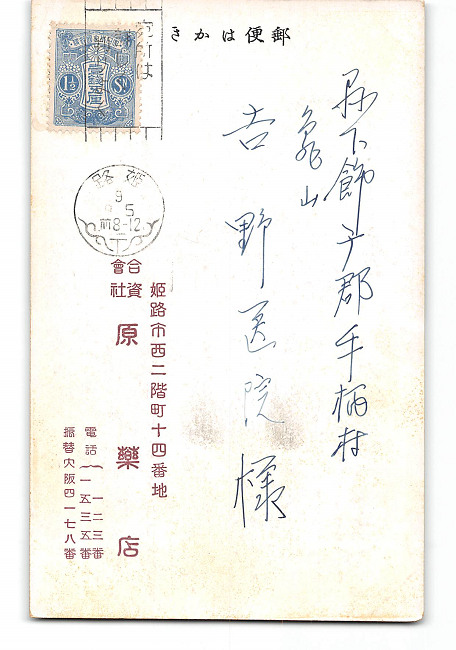 きかは便郵
県下飾マ郡手柄村
亀山
吉野医院様
壹錢五厘
1½ Sn
宛町は
姫路
9
5
前8-12
姫路市西二階町十四番地
合資會社 原藥店
電話(一二三番
一五三五番
振替大阪四一七八番